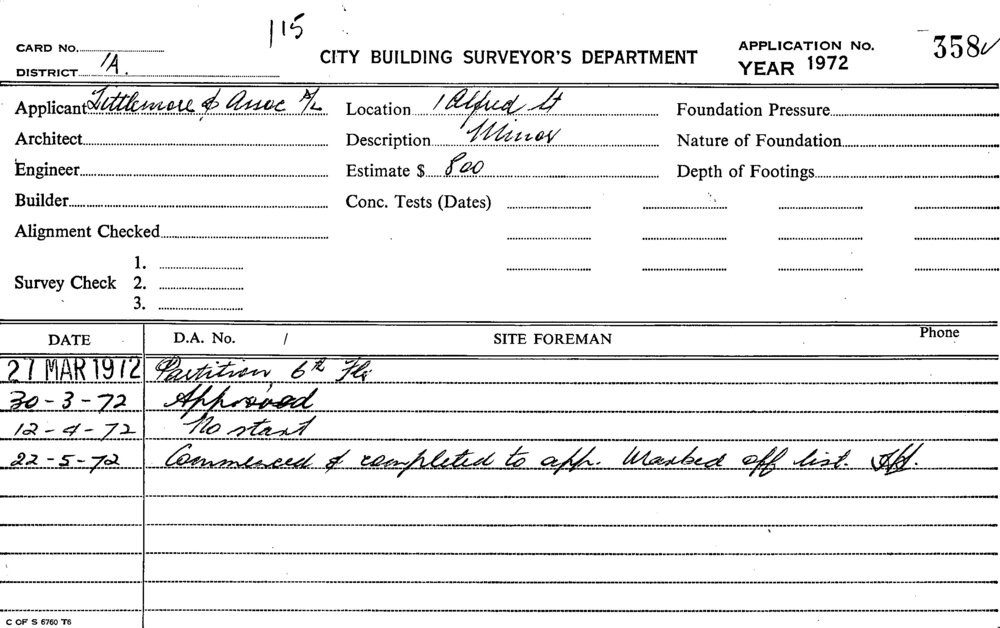 115
CARD No.
CITY BUILDING SURVEYOR'S DEPARTMENT
APPLICATION No. 358
DISTRICT 1A.
YEAR 1972
Applicant Littlemore & Assoc P/L Location 1 Alfred St Foundation Pressure
Architect Description Minor Nature of Foundation
Engineer Estimate $ 800 Depth of Footings
Builder Conc. Tests (Dates)
Alignment Checked
1.
Survey Check 2.
3.
DATE D.A. No. / SITE FOREMAN Phone
27 MAR 1972 Partition, 6th Flr
30-3-72 Approved
12-4-72 No start
22-5-72 Commenced & completed to app. Marked off list.
C OF S 6760 T6